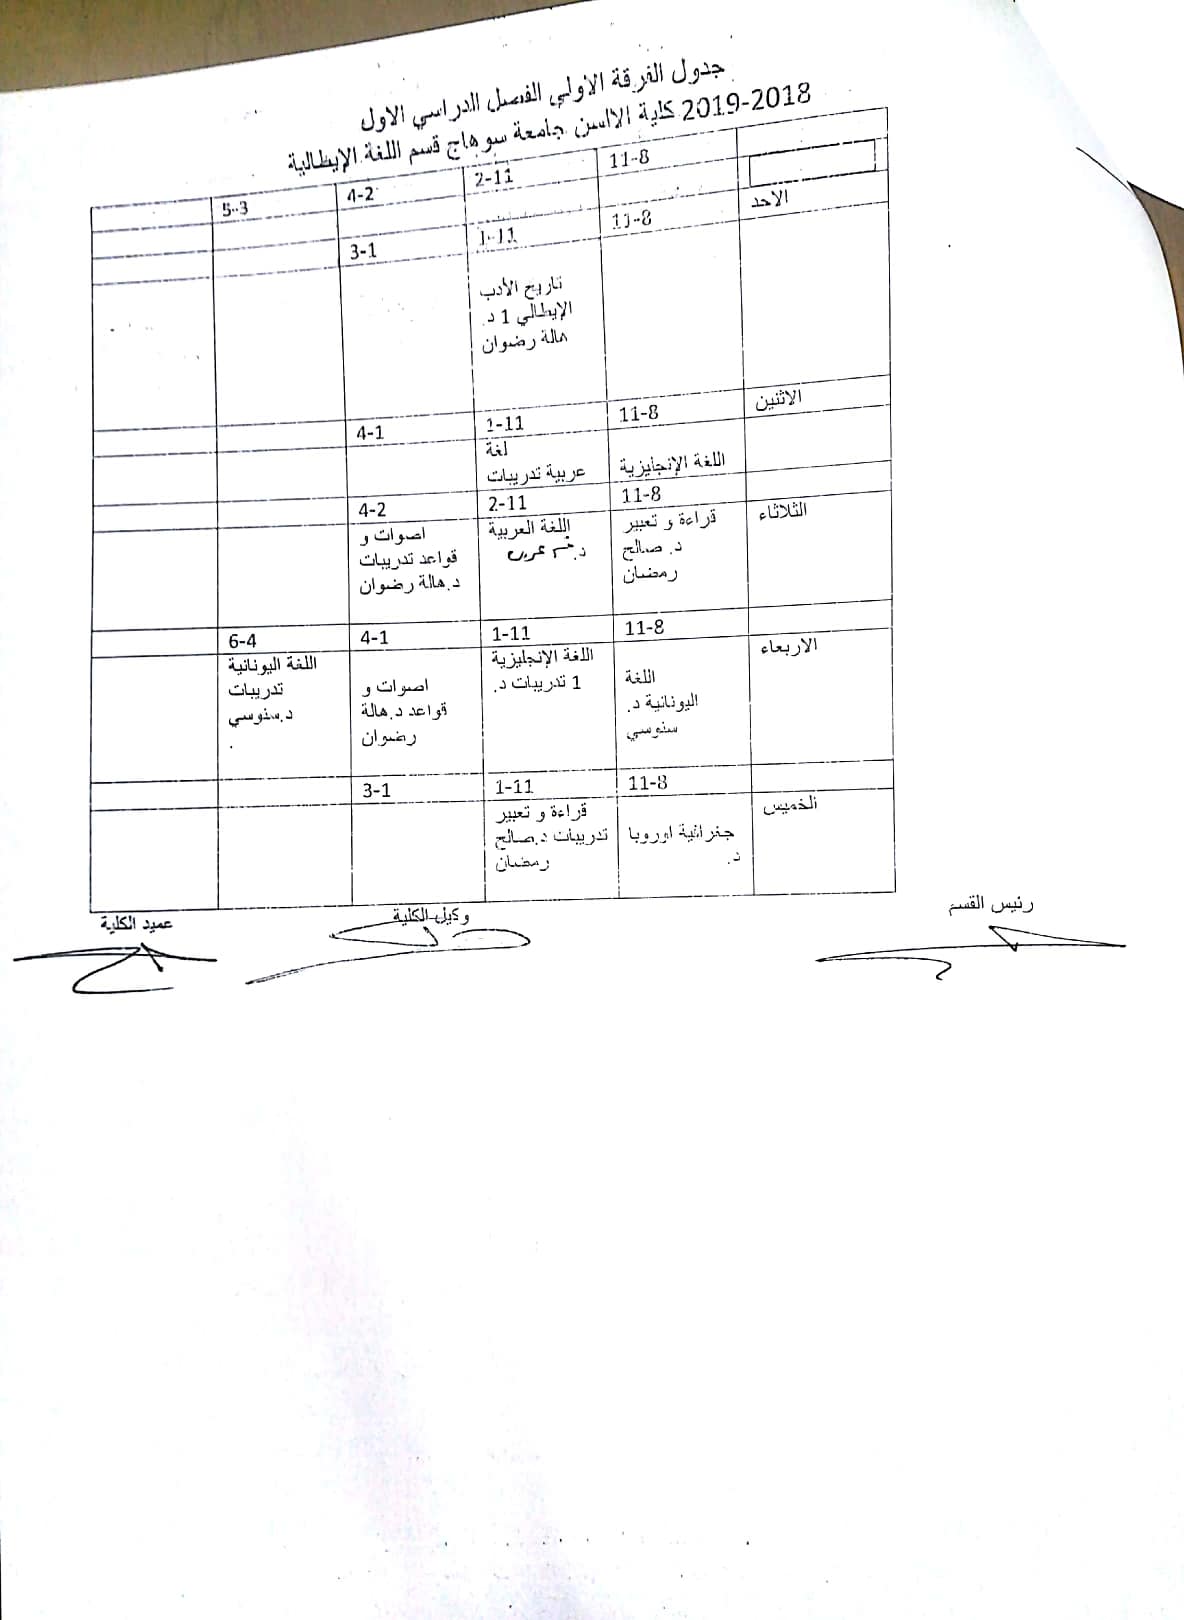 جدول الفرقة الاولي الفصل الدراسي الاول
2019-2018 كلية الالسن جامعة سوهاج قسم اللغة الإيطالية
11-8
2-11
4-2
5-3
الاحد
11-8
1-11
3-1
تاريخ الأدب
الإيطالي 1 د.
هالة رضوان
الاثنين
11-8
1-11
4-1
اللغة الإنجليزية
لغة
عربية تدريبات
11-8
2-11
4-2
الثلاثاء
قراءة و تعبير
د. صالح
رمضان
اللغة العربية
د.
اصوات و
قواعد تدريبات
د.هالة رضوان
11-8
1-11
4-1
6-4
الاربعاء
اللغة
اليونانية د.
سنوسي
اللغة الإنجليزية
1 تدريبات د.
اصوات و
قواعد د.هالة
رضوان
اللغة اليونانية
تدريبات
د.سنوسي
.
11-8
1-11
3-1
الخميس
جغرافية اوروبا
د.
قراءة و تعبير
تدريبات د.صالح
رمضان
رئيس القسم
وكيل الكلية
عميد الكلية